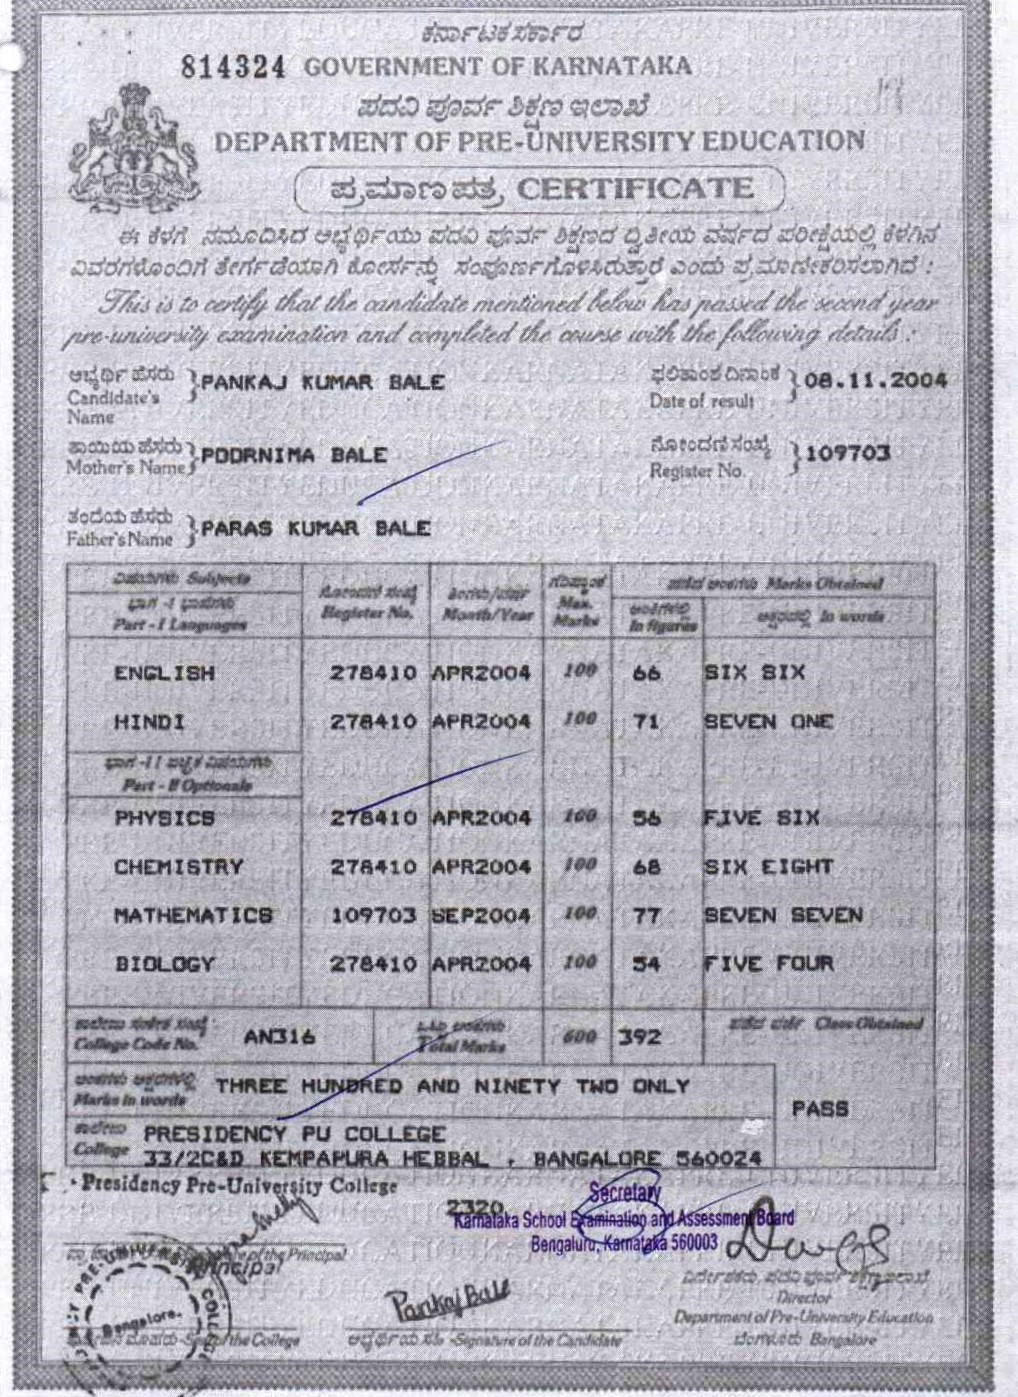 ಕರ್ನಾಟಕ ಸರ್ಕಾರ
814324 GOVERNMENT OF KARNATAKA
ಪದವಿ ಪೂರ್ವ ಶಿಕ್ಷಣ ಇಲಾಖೆ
DEPARTMENT OF PRE-UNIVERSITY EDUCATION
ಪ್ರಮಾಣಪತ್ರ CERTIFICATE
ಈ ಕೆಳಗೆ ನಮೂದಿಸಿದ ಅಭ್ಯರ್ಥಿಯು ಪದವಿ ಪೂರ್ವ ಶಿಕ್ಷಣದ ದ್ವಿತೀಯ ವರ್ಷದ ಪರೀಕ್ಷೆಯಲ್ಲಿ ಕೆಳಗಿನ
ವಿವರಗಳೊಂದಿಗೆ ತೇರ್ಗಡೆಯಾಗಿ ಕೋರ್ಸನ್ನು ಸಂಪೂರ್ಣಗೊಳಿಸಿರುತ್ತಾರೆ ಎಂದು ಪ್ರಮಾಣೀಕರಿಸಲಾಗಿದೆ :
This is to certify that the candidate mentioned below has passed the second year
pre-university examination and completed the course with the following details :
ಅಭ್ಯರ್ಥಿ ಹೆಸರು Candidate's Name } PANKAJ KUMAR BALE
ಫಲಿತಾಂಶ ದಿನಾಂಕ Date of result } 08.11.2004
ತಾಯಿಯ ಹೆಸರು Mother's Name } POORNIMA BALE
ನೋಂದಣಿ ಸಂಖ್ಯೆ Register No. } 109703
ತಂದೆಯ ಹೆಸರು Father's Name } PARAS KUMAR BALE
ವಿಷಯಗಳು Subjects
ಭಾಗ -I ಭಾಷೆಗಳು
Part - I Languages
ನೋಂದಣಿ ಸಂಖ್ಯೆ Register No.
ತಿಂಗಳು/ವರ್ಷ Month/Year
ಗರಿಷ್ಠಾಂಕ Max. Marks
ಪಡೆದ ಅಂಕಗಳು Marks Obtained
ಅಂಕಿಗಳಲ್ಲಿ In figures
ಅಕ್ಷರದಲ್ಲಿ In words
ENGLISH 278410 APR2004 100 66 SIX SIX
HINDI 278410 APR2004 100 71 SEVEN ONE
ಭಾಗ -II ಐಚ್ಛಿಕ ವಿಷಯಗಳು
Part - II Optionals
PHYSICS 278410 APR2004 100 56 FIVE SIX
CHEMISTRY 278410 APR2004 100 68 SIX EIGHT
MATHEMATICS 109703 SEP2004 100 77 SEVEN SEVEN
BIOLOGY 278410 APR2004 100 54 FIVE FOUR
ಕಾಲೇಜು ಸಂಕೇತ ಸಂಖ್ಯೆ College Code No. AN316
ಒಟ್ಟು ಅಂಕಗಳು Total Marks 600 392
ಪಡೆದ ವರ್ಗ Class Obtained
ಅಂಕಗಳು ಅಕ್ಷರಗಳಲ್ಲಿ Marks in words THREE HUNDRED AND NINETY TWO ONLY
PASS
ಕಾಲೇಜು College PRESIDENCY PU COLLEGE
33/2C&D KEMPAPURA HEBBAL , BANGALORE 560024
Presidency Pre-University College
2320
Secretary
Karnataka School Examination and Assessment Board
Bengaluru, Karnataka 560003
of the Principal
Principal
Bangalore.
Pankaj Bale
of the College
ಅಭ್ಯರ್ಥಿಯ ಸಹಿ -Signature of the Candidate
ನಿರ್ದೇಶಕರು, ಪದವಿ ಪೂರ್ವ ಶಿಕ್ಷಣ ಇಲಾಖೆ
Director
Department of Pre-University Education
ಬೆಂಗಳೂರು Bangalore